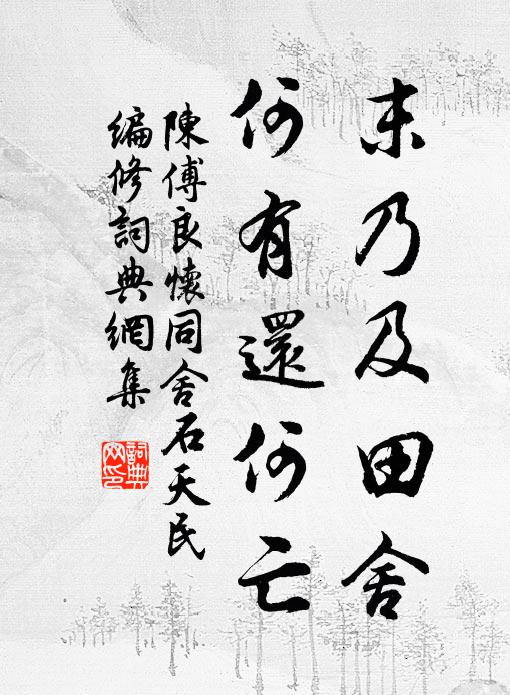 末乃及田舍
何有還何亡
陳傅良懷同舍石天民
編修詞典網集
詞典網印